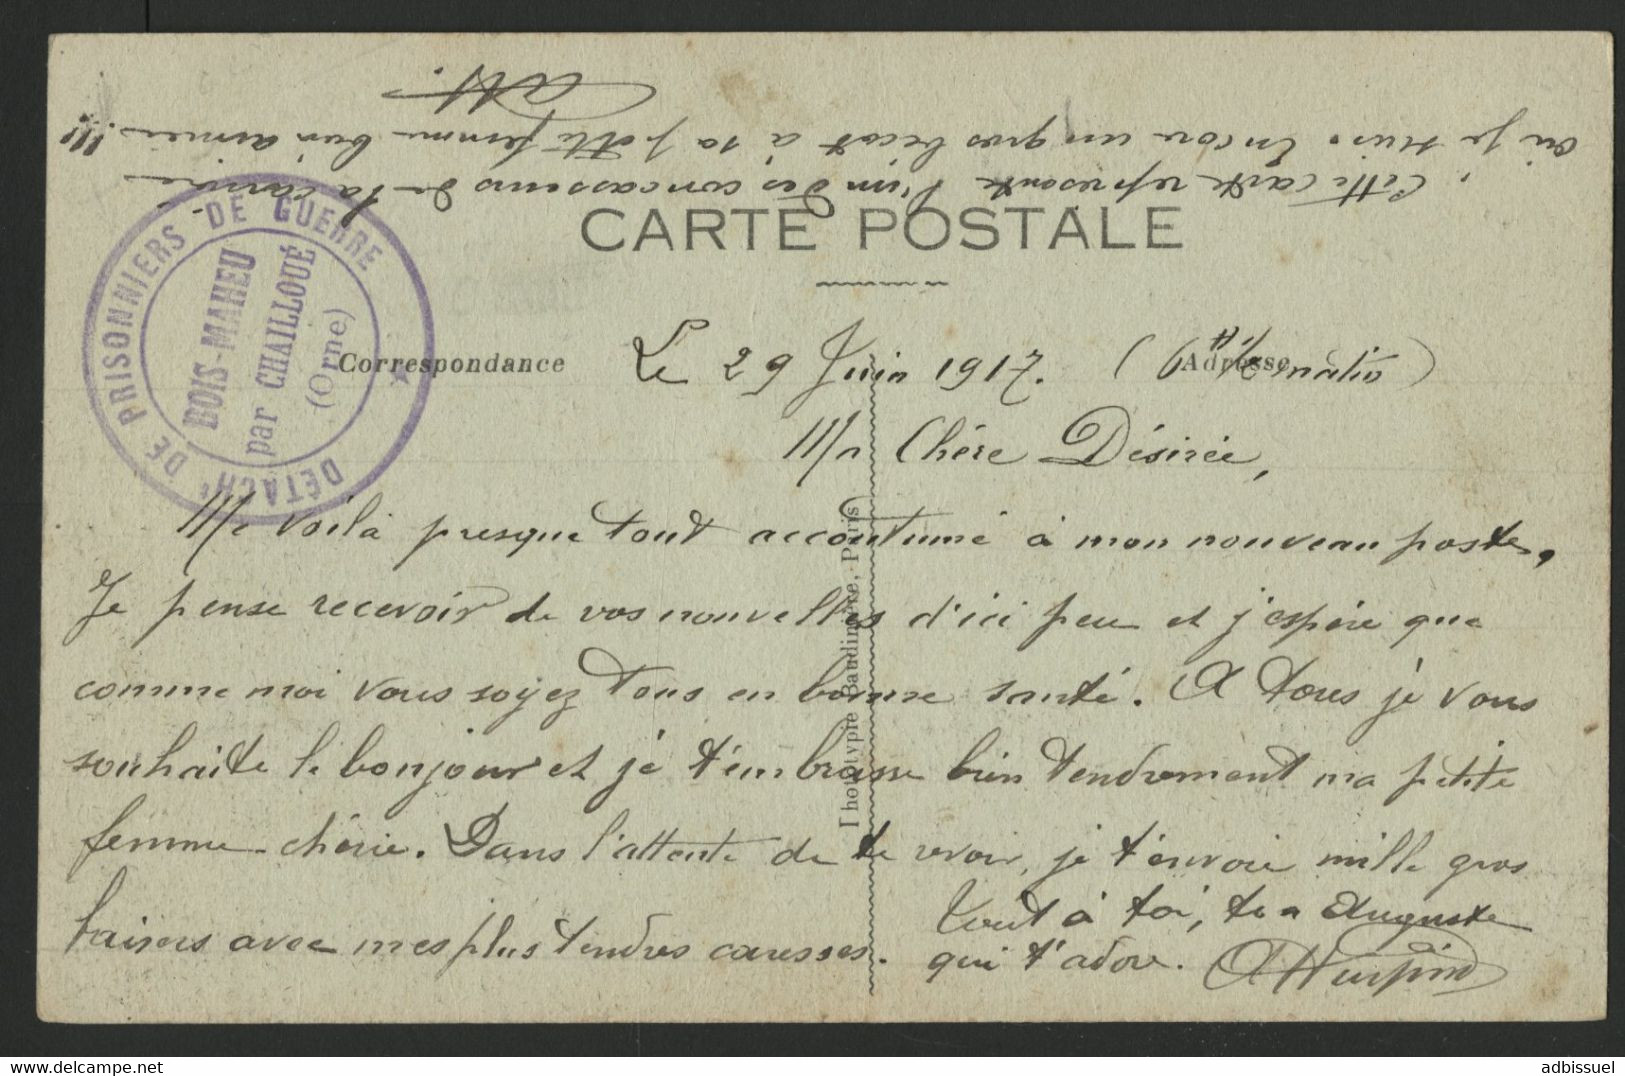 Cette carte représente l'un des concasseurs de la carrière
où je suis. Encore un gros bécot à ta petite femme bien aimée !!!
CARTE POSTALE
DÉTACHt DE PRISONNIERS DE GUERRE
BOIS-MAHEU
par CHAILLOUÉ
(Orne)
Correspondance
Adresse
Le 29 Juin 1917. (6 h 1/2 matin)
Ma Chère Désirée,
Me voilà presque tout accoutumé à mon nouveau poste,
Je pense recevoir de vos nouvelles d'ici peu et j'espère que
comme moi vous soyez tous en bonne santé. A tous je vous
souhaite le bonjour et je t'embrasse bien tendrement ma petite
femme chérie. Dans l'attente de te revoir, je t'envoie mille gros
baisers avec mes plus tendres caresses.
Tout à toi, ton Auguste
qui t'adore.
Phototypie Baudinière, Paris
adbissuel
delcampe.net